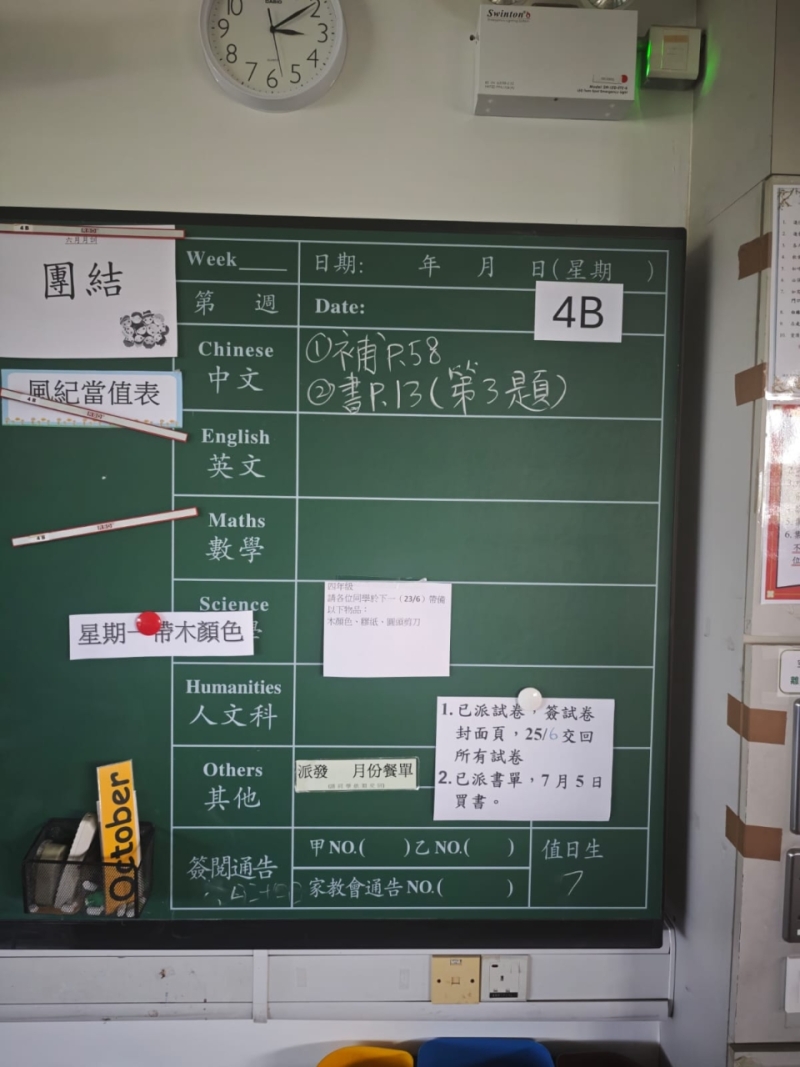 10
2
9
3
8
4
7
6
5
Swinton
六月月訓
團結
風紀當值表
Week____
第 週
日期: 年 月 日(星期 )
Date:
4B
Chinese
中文
①補P.58
②書P.13(第3題)
English
英文
Maths
數學
Science
學
四年級
請各位同學於下一(23/6)帶備
以下物品:
木顏色、膠紙、圓頭剪刀
星期一帶木顏色
Humanities
人文科
1.已派試卷,簽試卷
封面頁,25/6交回
所有試卷
2.已派書單,7月5日
買書。
Others
其他
派發 月份餐單
October
簽閱通告
甲NO.( )乙NO.( )
家教會通告NO.( )
值日生
7